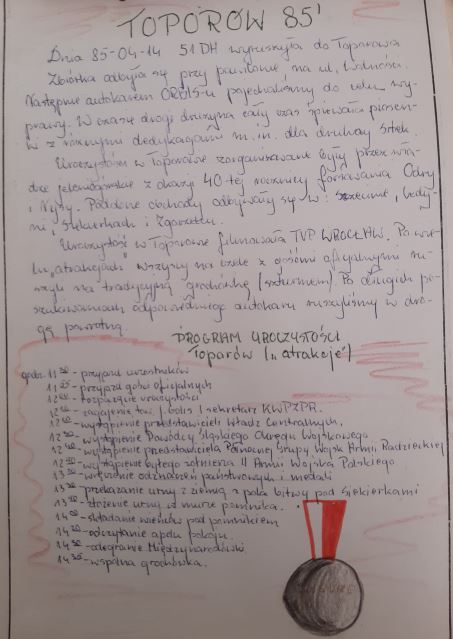 TOPORÓW 85'
Dnia 85-04-14 51 DH wyruszyła do Toporowa
Zbiórka odbyła się przy pawilonie na ul. Wolności.
Następnie autokarem ORBIS-u pojechaliśmy do celu wy-
prawy. W czasie drogi drużyna cały czas śpiewała piosen-
ki z różnymi dedykacjami m.in. dla druhny
Uroczystości w Toporowie zorganizowane były przez wła-
dze jeleniogórskie z okazji 40-tej rocznicy forsowania Odry
i Nysy. Podobne obchody odbywały się w: Szczecinie,
Siekierkach i Zgorzelcu.
Uroczystość w Toporowie filmowała TVP WROCŁAW. Po wie-
lu "atrakcjach" wszyscy na czele z gośćmi oficjalnymi ru-
szyli na tradycyjną grochówkę Po długich po-
szukiwaniach odpowiedniego autokaru ruszyliśmy w dro-
gę powrotną.
PROGRAM UROCZYSTOŚCI
Toporów ("atrakcje")
godz. 11 - przyjazd uczestników
11 - przyjazd gości oficjalnych
12 - rozpoczęcie uroczystości
12 - zagajenie tow. I sekretarz KWPZPR.
12 - wystąpienie przedstawicieli Władz Centralnych,
12 - wystąpienie Dowódcy Śląskiego Okręgu Wojskowego
12 - wystąpienie przedstawiciela Północnej Grupy Wojsk Armii Radzieckiej
12 - wystąpienie byłego żołnierza II Armii Wojska Polskiego
13 - wręczenie odznaczeń państwowych i medali
13 - przekazanie urny z ziemią z pola bitwy pod Siekierkami
13 - złożenie urny w murze pomnika.
14 - składanie wieńców pod pomnikiem
14 - odczytanie apelu pokoju.
14 - odegranie Międzynarodówki
14 - wspólna grochówka.